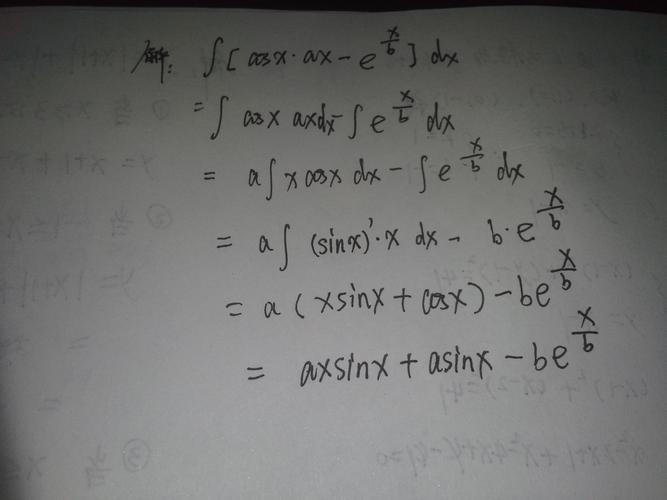 解: ∫[cosx·ax-e^{x/b}]dx
=∫cosx axdx-∫e^{x/b}dx
=a∫xcosxdx-∫e^{x/b}dx
=a∫(sinx)'·xdx-b·e^{x/b}
=a(xsinx+cosx)-be^{x/b}
=axsinx+asinx-be^{x/b}